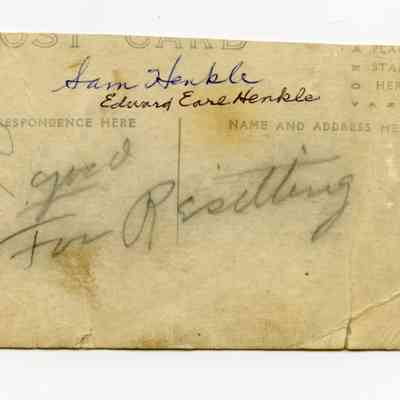 POST CARD
Sam Henkle
Edward Earl Henkle
RESPONDENCE HERE
NAME AND ADDRESS HE
PLA
STA
HER
good
For Resetting